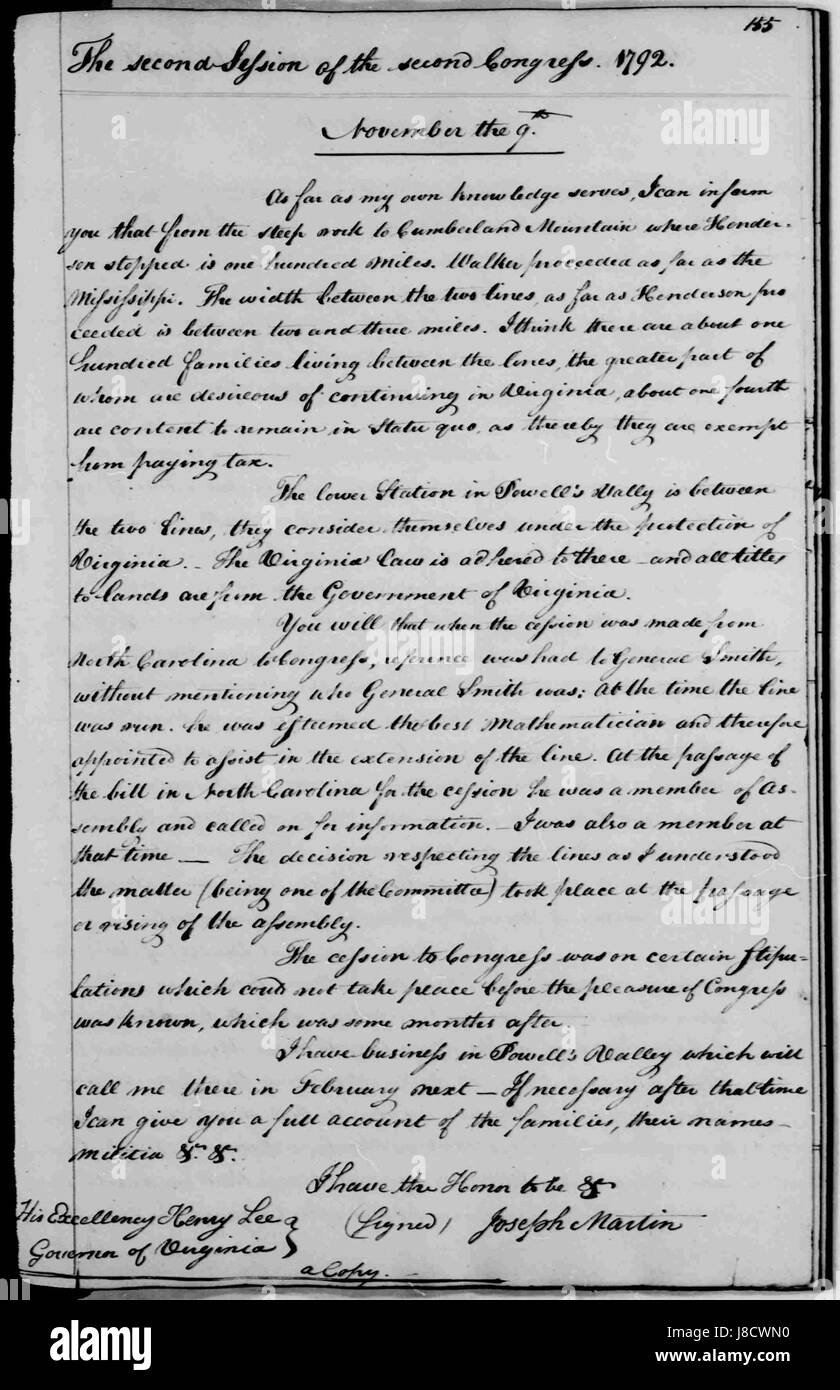 155
The second Session of the second Congress. 1792.
November the 9th.
As far as my own knowledge serves, I can inform
you that from the steep rock to Cumberland Mountain where Hender-
son stopped is one hundred miles. Walker proceeded as far as the
Mississippi. The width between the two lines, as far as Henderson pro
ceeded is between two and three miles. I think there are about one
hundred families living between the lines, the greater part of
whom are desireous of continuing in Virginia, about one fourth
are content to remain in Statu quo, as thereby they are exempt
from paying tax.
The lower Station in Powell's Vally is between
the two lines, they consider themselves under the protection of
Virginia. - The Virginia Law is adhered to there - and all titles
to lands are from the Government of Virginia.
You will that when the cession was made from
North Carolina to Congress, reference was had to General Smith,
without mentioning who General Smith was; at the time the line
was run. he was esteemed the best Mathematician and therefore
appointed to assist in the extension of the line. At the passage of
the bill in North Carolina for the cession he was a member of As-
sembly and called on for information. - I was also a member at
that time — The decision respecting the lines as I understood
the matter (being one of the Committee) took place at the passage
or rising of the assembly.
The cession to Congress was on certain stipu-
lations which could not take place before the pleasure of Congress
was known, which was some months after.
I have business in Powell's Valley which will
call me there in February next — If necessary after that time
I can give you a full account of the families, their names -
militia &c. &c.
I have the Honor to be &c
His Excellency Henry Lee } (Signed) Joseph Martin
Governor of Virginia
a Copy. -
alamy
Image ID: J8CWN0
www.alamy.com